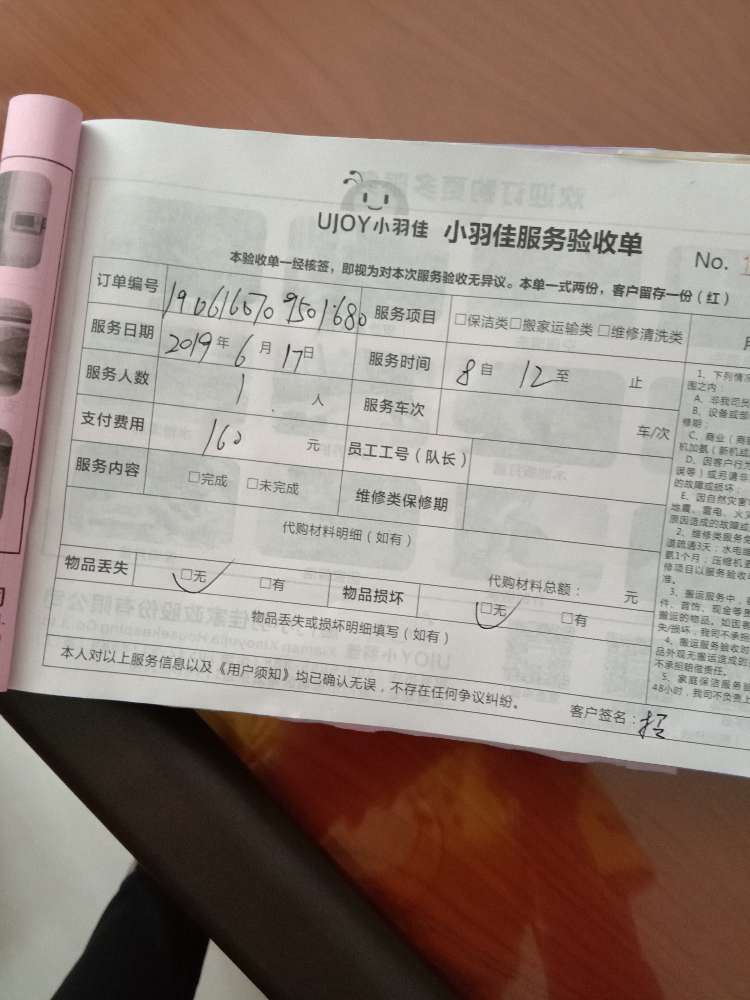 UJOY小羽佳 小羽佳服务验收单
No. 1
本验收单一经核签，即视为对本次服务验收无异议。本单一式两份，客户留存一份（红）
订单编号 190616070 9501680 服务项目 □保洁类□搬家运输类 □维修清洗类
服务日期 2019年 6 月 17日 服务时间 8自 12至 止
服务人数 1 人 服务车次 车/次
支付费用 160 元 员工工号（队长）
服务内容 □完成 □未完成 维修类保修期
代购材料明细（如有）
代购材料总额： 元
物品丢失 □无 □有 物品损坏 □无 □有
物品丢失或损坏明细填写（如有）
本人对以上服务信息以及《用户须知》均已确认无误，不存在任何争议纠纷。
客户签名：
1、下列情况
围之内
A、非我司
B、设备或部
修期；
C、商业（商
机加氨（新机
D、因客户行为
误等）或另请非
的故障或损坏；
E、因自然灾害
地震、雷电、火灾
原因造成的故障或
2、维修类服务免
道疏通3天；水电维
氨1个月；压缩机
修项目以服务验收
准。
3、搬运服务中，
件、首饰、现金等
搬运的物品。如因客
失/损坏，我司不承担
4、搬运服务验收时
品外观无搬运造成的
不承担赔偿责任。
5、家庭保洁服务
48小时，我司不负责上